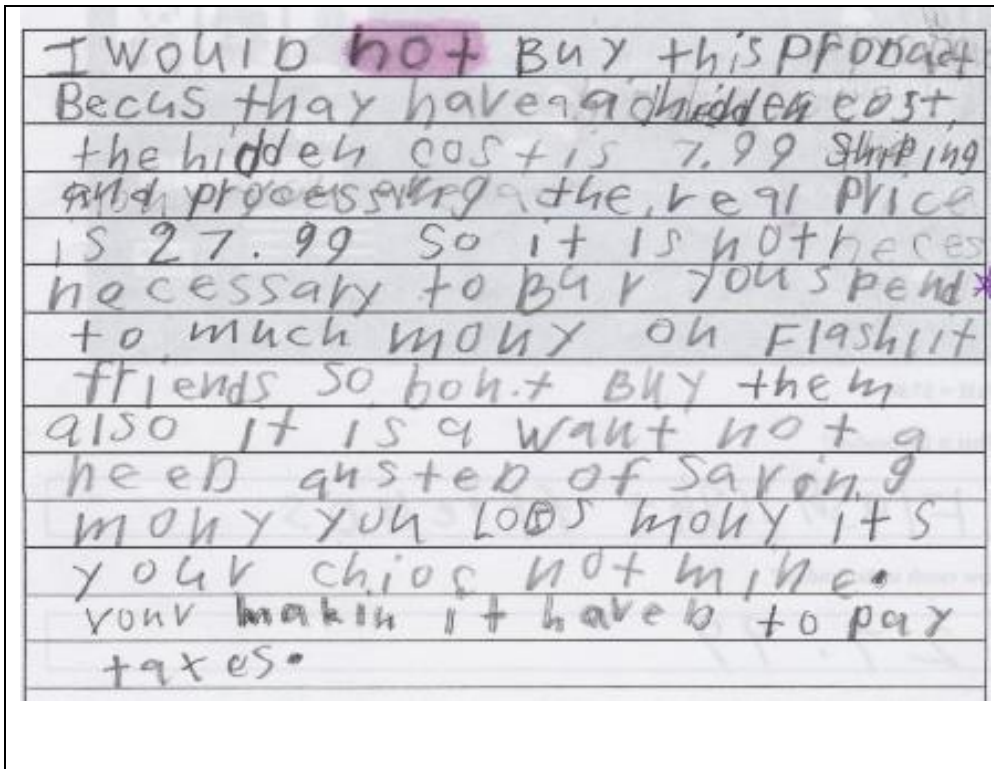 I WOUlD not BUY this proDuct
Becus thay have a hidden cost,
the hidden cost is 7.99 Shiping
and processing the real Price
is 27.99 So it is not neces
necessary to Buy you spend*
to much mony on Flashlit
friends so Don.t BUY them
also it is a want not a
neeD ansteD of Saving
mony you LOOS mony its
your chios not mine.
your makin it hareD to pay
taxes.